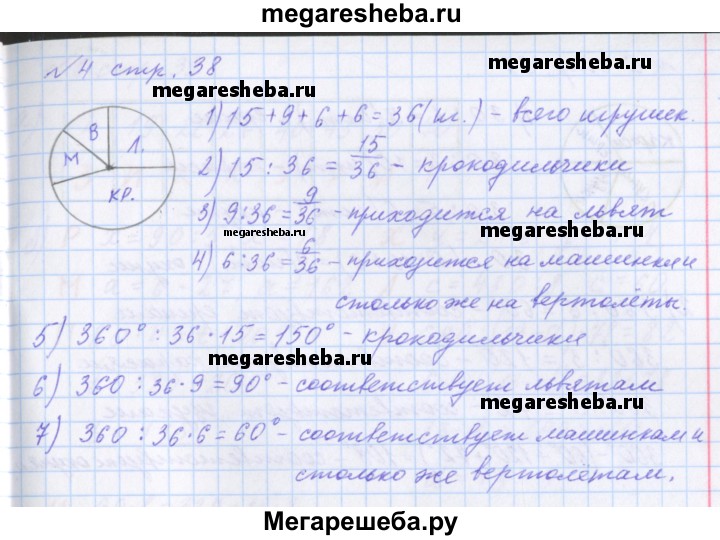 megaresheba.ru
№4 стр. 38
megaresheba.ru
megaresheba.ru
В
Л.
М
КР.
1) 15+9+6+6=36(иг.) - всего игрушек.
2) 15 : 36 = 15/36 - крокодильчики
3) 9:36 = 9/36 - приходится на львят
megaresheba.ru
megaresheba.ru
4) 6:36 = 6/36 - приходится на машинки и
столько же на вертолёты.
5) 360° : 36 · 15 = 150° - крокодильчики
megaresheba.ru
6) 360 : 36 · 9 = 90° - соответствует львятам
megaresheba.ru
7) 360 : 36 · 6 = 60° - соответствует машинкам и
столько же вертолётам.
Мегарешеба.ру